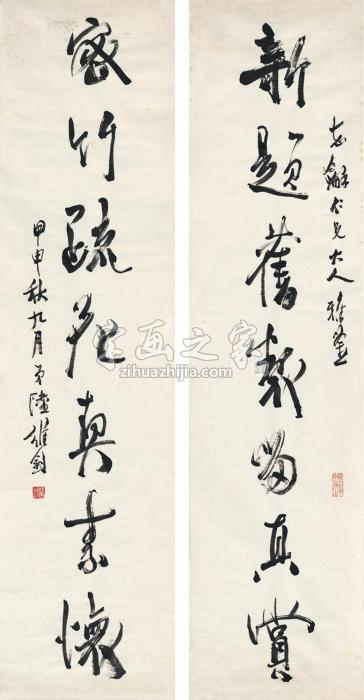 志龢仁兄大人雅鑒
新題舊製留真賞
密竹疏花契素懷
甲申秋九月弟陸維釗
字画之家
zihuazhijia.com